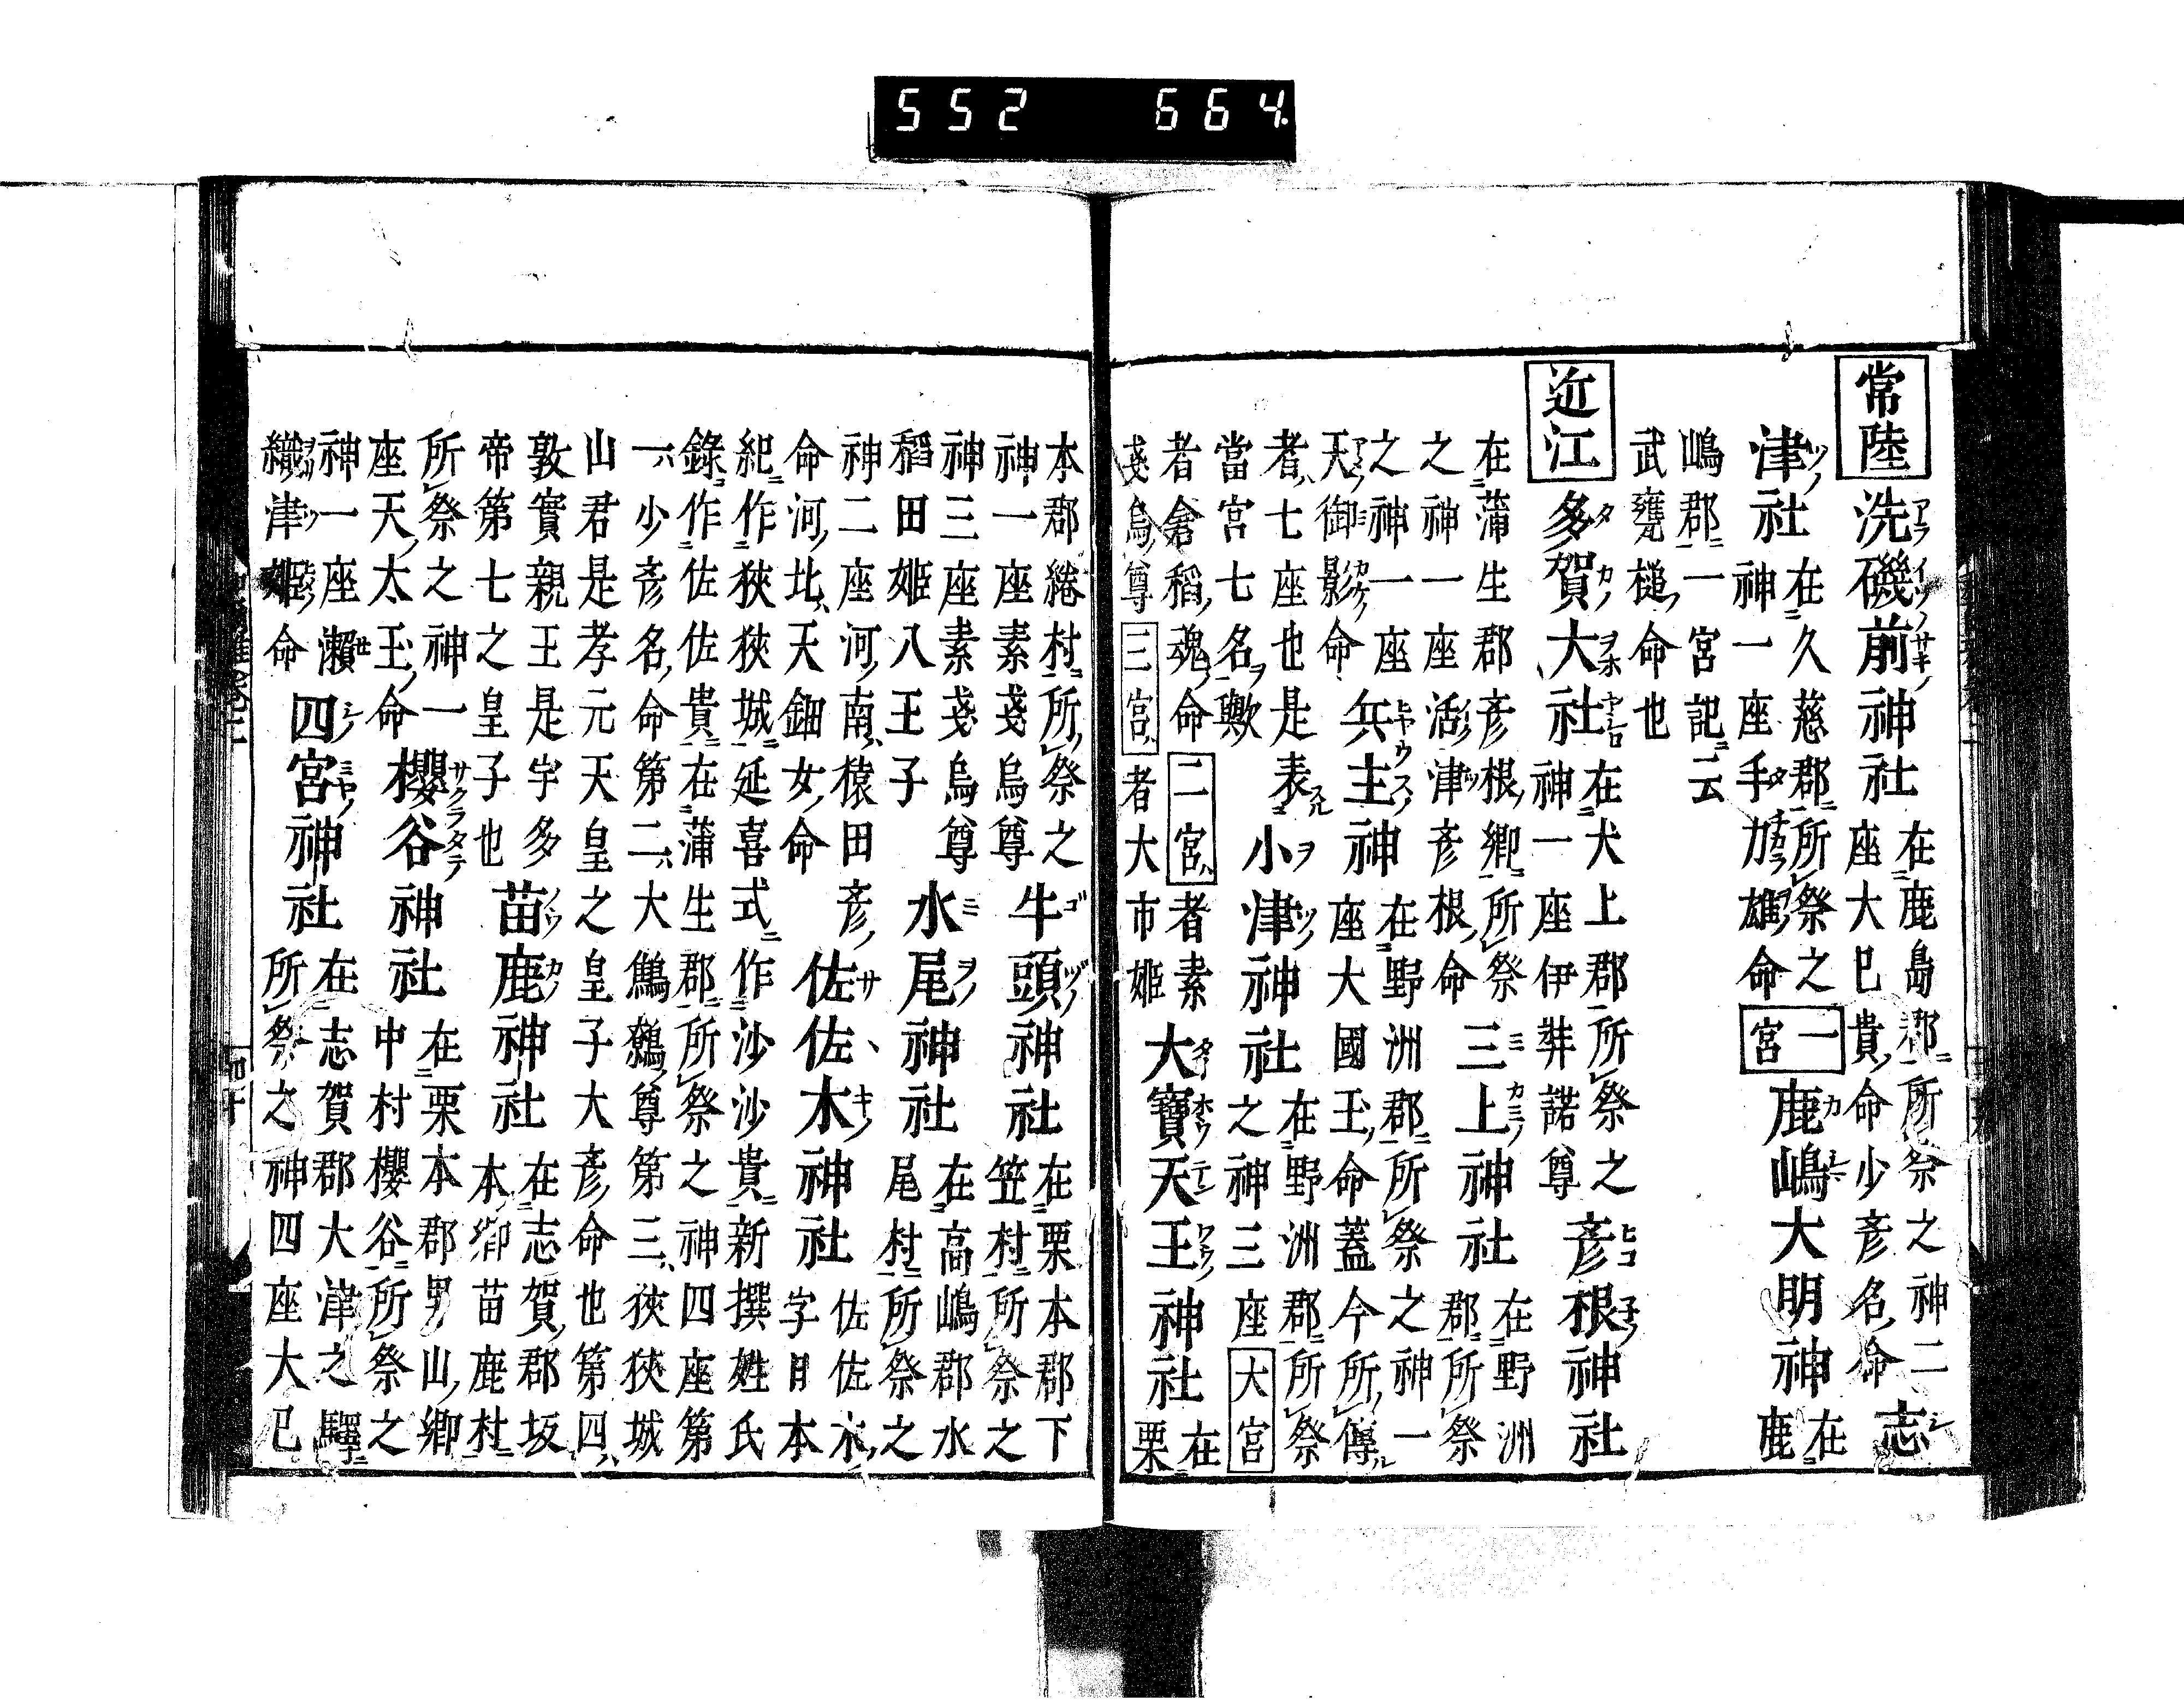 常陸 洗磯前神社 在鹿島郡所祭之神二座大巳貴命少彥名命 志
津社 在久慈郡所祭之神一座手力雄命 一宮 鹿嶋大明神 在鹿
嶋郡一宮記云武甕槌命也
近江 多賀大社 在犬上郡所祭之神一座伊弉諾尊 彥根神社
在蒲生郡彥根鄉所祭之神一座活津彥根命 三上神社 在野洲郡所祭
之神一座天御影命 兵主神 在野洲郡所祭之神一座大國玉命蓋今所傳
者七座也是表當宮七名歟 小津神社 在野洲郡所祭之神三座 大宮
者倉稻魂命 二宮 者素戔烏尊 三宮 者大市姬 大寶天王神社 在栗
本郡綣村所祭之神一座素戔烏尊 牛頭神社 在栗本郡下笠村所祭之
神三座素戔烏尊稻田姬八王子 水尾神社 在高嶋郡水尾村所祭之
神二座河南猿田彥命河北天鈿女命 佐佐木神社 佐佐木字日本
紀作狹狹城延喜式作沙沙貴新撰姓氏錄作佐佐貴在蒲生郡所祭之神四座第
一少彥名命第二大鷦鷯尊第三狹狹城山君是孝元天皇之皇子大彥命也第四
敦實親王是宇多帝第七之皇子也 苗鹿神社 在志賀郡坂本鄉苗鹿村
所祭之神一座天太玉命 櫻谷神社 在栗本郡男山鄉中村櫻谷所祭之
神一座瀨織津姬命 四宮神社 在志賀郡大津之驛所祭之神四座大巳
552 664